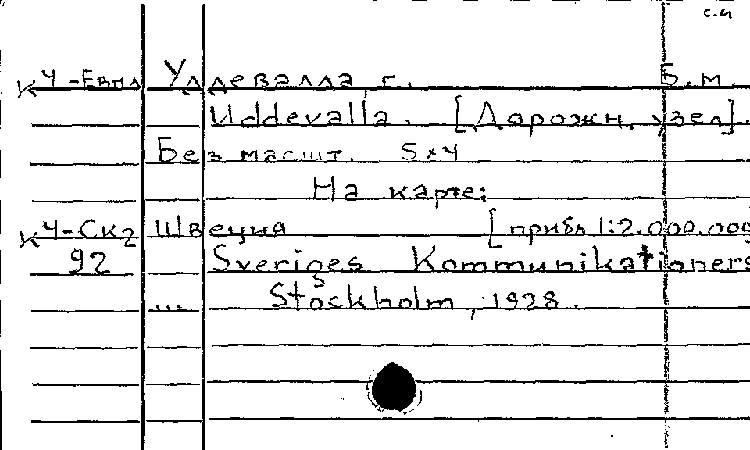 с.ч
К 4-Евпл Уддевалла г. Б.м.
Uddevalla. [Дорожн. узел].
Без масшт. 5x4
На карте:
К 4-Ск2 Швеция [прибл 1:2.000.000
92 Sveriges Kommunikationers
... Stockholm, 1928.